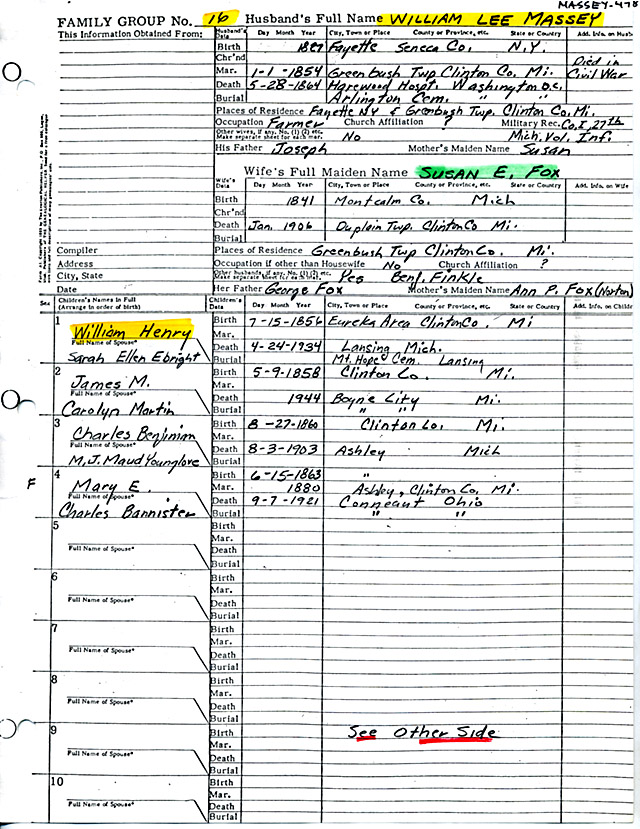 MASSEY-478
FAMILY GROUP No. 16 Husband's Full Name WILLIAM LEE MASSEY
This Information Obtained From: Husband's Data Day Month Year City, Town or Place County or Province, etc. State or Country Add. Info. on Husb
Birth Fayette Seneca Co. N.Y.
Chr'nd Died in
Mar. 1-1-1854 Greenbush Twp Clinton Co. Mi. Civil War
Death 5-28-1864 Harewood Hospt. Washington D.C.
Burial Arlington Cem. "
Places of Residence Fayette NY & Greenbush Twp. Clinton Co. Mi.
Occupation Farmer Church Affiliation ? Military Rec. Co. I, 27th
Other wives, if any. No. (1) (2) etc. Make separate sheet for each mar. No Mich. Vol. Inf.
His Father Joseph Mother's Maiden Name Susan
Wife's Full Maiden Name SUSAN E. FOX
Wife's Data Day Month Year City, Town or Place County or Province, etc. State or Country Add. Info. on Wife
Birth 1841 Montcalm Co. Mich
Chr'nd
Death Jan. 1906 Duplain Twp. Clinton Co Mi.
Burial
Compiler Places of Residence Greenbush Twp Clinton Co. Mi.
Address Occupation if other than Housewife No Church Affiliation ?
City, State Other husbands, if any. No. (1) (2) etc. Make separate sheet for each mar. Yes Benj. Finkle
Date Her Father George Fox Mother's Maiden Name Ann P. Fox (Norton)
Sex Children's Names in Full (Arrange in order of birth) Children's Data Day Month Year City, Town or Place County or Province, etc. State or Country Add. Info. on Childr
1 Birth 7-15-1856 Eureka Area Clinton Co. Mi
William Henry Mar.
Full Name of Spouse* Death 4-24-1934 Lansing Mich.
Sarah Ellen Ebright Burial Mt. Hope Cem. Lansing
2 Birth 5-9-1858 Clinton Co. Mi.
James M. Mar.
Full Name of Spouse* Death 1944 Boyne City Mi.
Carolyn Martin Burial " " "
3 Birth 8-27-1860 Clinton Co. Mi.
Charles Benjiman Mar.
Full Name of Spouse* Death 8-3-1903 Ashley Mich
M.J. Maud Younglove Burial
4 Birth 6-15-1863 "
F Mary E. Mar. 1880 Ashley, Clinton Co. Mi.
Full Name of Spouse* Death 9-7-1921 Conneaut Ohio
Charles Bannister Burial " "
5 Birth
Mar.
Full Name of Spouse* Death
Burial
6 Birth
Mar.
Full Name of Spouse* Death
Burial
7 Birth
Mar.
Full Name of Spouse* Death
Burial
8 Birth
Mar.
Full Name of Spouse* Death
Burial
9 Birth See Other Side
Mar.
Full Name of Spouse* Death
Burial
10 Birth
Mar.
Full Name of Spouse* Death
Burial